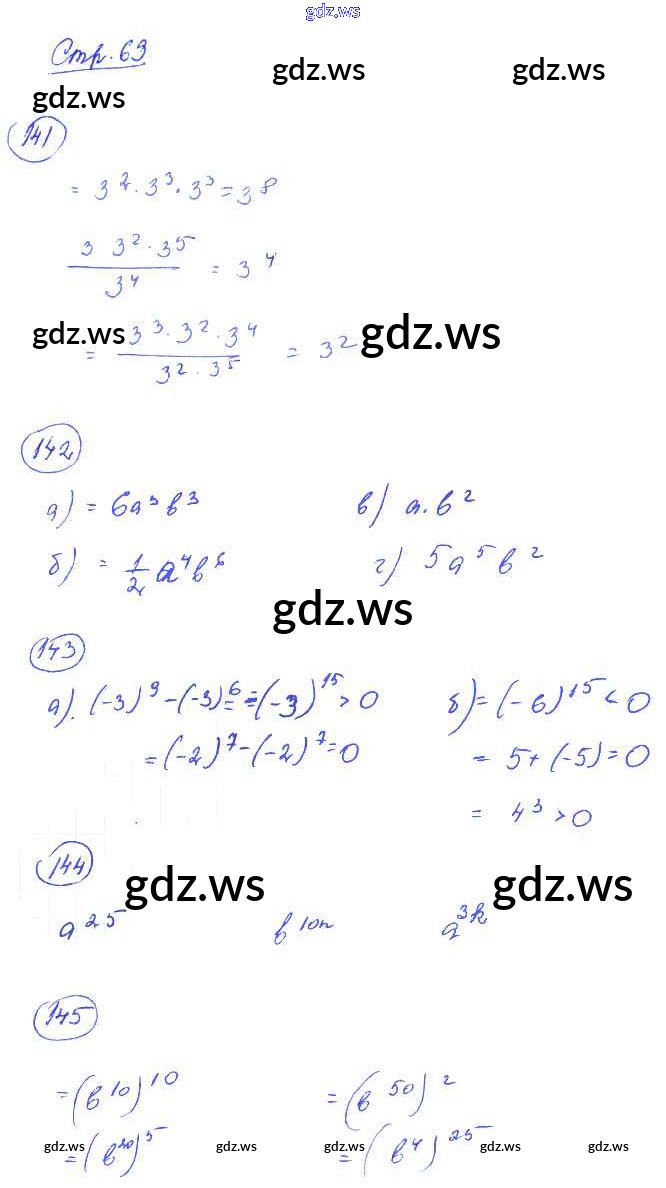 gdz.ws
Стр. 63
gdz.ws gdz.ws
gdz.ws
141
= 3² · 3³ · 3³ = 3⁸
3 3² · 3⁵ / 3⁴ = 3⁴
gdz.ws gdz.ws
= 3³ · 3² · 3⁴ / 3² · 3⁵ = 3²
142
а) = 6a³b³ в) a · b²
б) = 1/2 a⁴b⁶ г) 5a⁵b²
gdz.ws
143
а). (-3)⁹ - (-3)⁶ = = (-3)¹⁵ > 0 б) = (-6)¹⁵ < 0
= (-2)⁷ - (-2)⁷ = 0 = 5 + (-5) = 0
= 4³ > 0
144
gdz.ws gdz.ws
a²⁵ b¹⁰ⁿ a³ᵏ
145
= (b¹⁰)¹⁰ = (b⁵⁰)²
= (b²⁰)⁵ = (b⁴)²⁵
gdz.ws gdz.ws gdz.ws gdz.ws gdz.ws